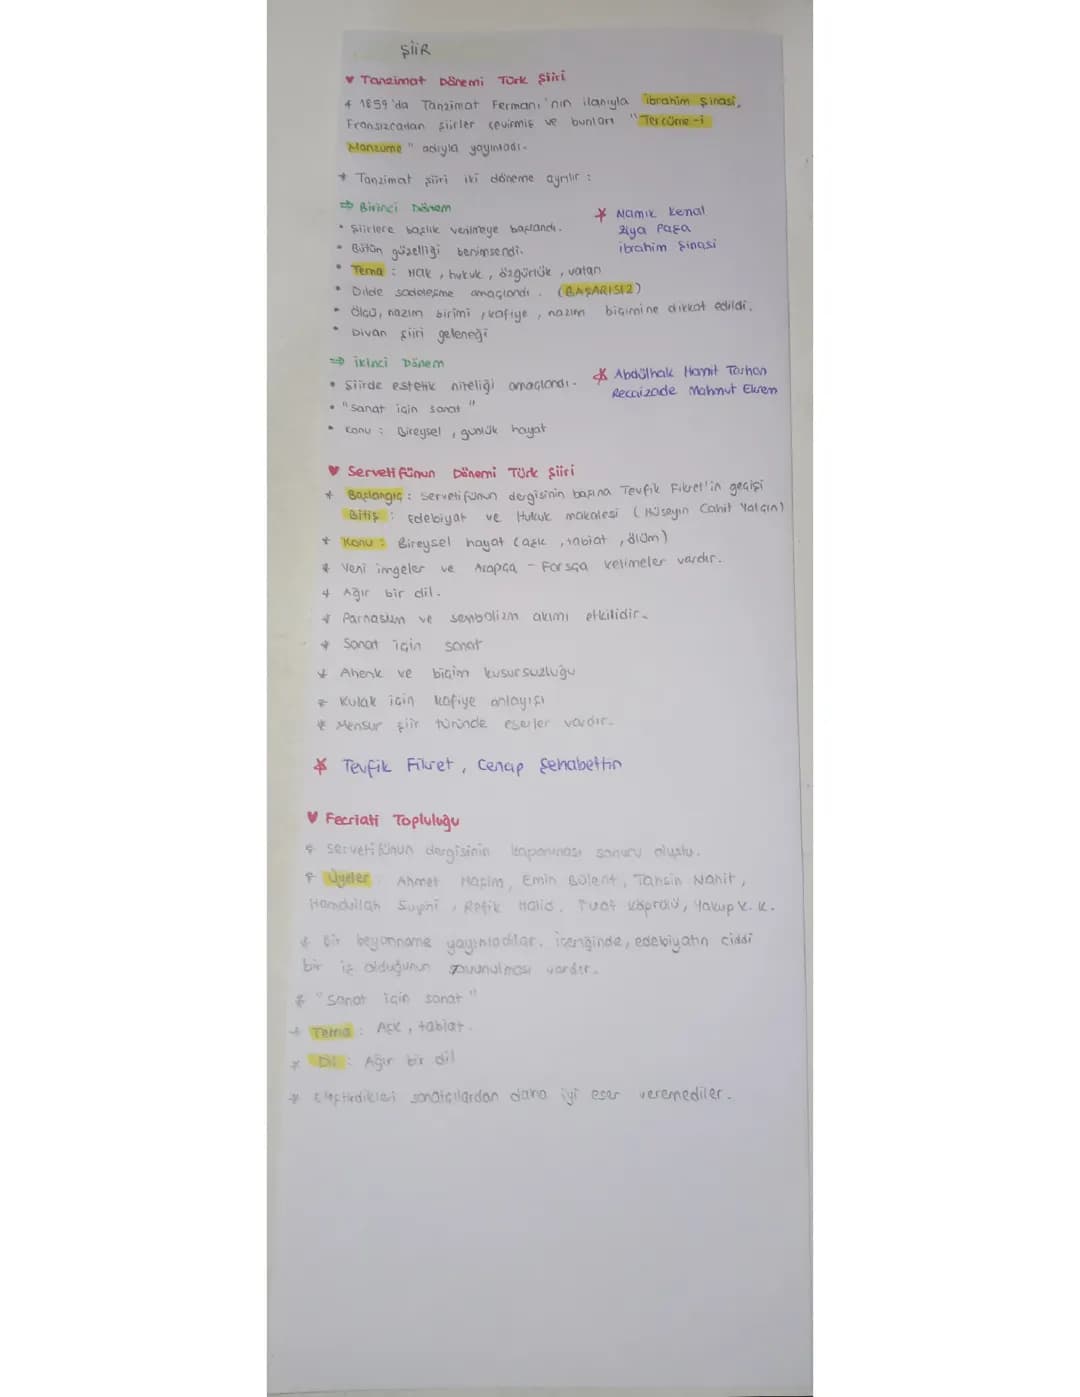 ŞİİR
Tanzimat Dönemi Türk Şiiri
1859'da Tanzimat Fermanı'nın ilanıyla İbrahim Şinasi,
Fransızcadan şiirler çevirmiş ve bunları "Tercüme-i
Manzume" adıyla yayınladı.
* Tanzimat şiiri iki döneme ayrılır :
⇒ Birinci Dönem
• Şiirlere başlık verilmeye başlandı.
* Namık Kemal
Ziya Paşa
İbrahim Şinasi
• Bütün güzelliği benimsendi.
• Tema : Hak, hukuk, özgürlük, vatan
• Dilde sadeleşme amaçlandı. (BAŞARISIZ)
• Ölçü, nazım birimi, kafiye, nazım biçimine dikkat edildi.
• Divan şiiri geleneği
⇒ İkinci Dönem
• Şiirde estetik niteliği amaçlandı.
* Abdülhak Hamit Tarhan
Recaizade Mahmut Ekrem
• "Sanat için sanat"
• Konu : Bireysel, günlük hayat
Servetifünun Dönemi Türk Şiiri
* Başlangıç : Servetifünun dergisinin başına Tevfik Fikret'in geçişi
Bitiş : Edebiyat ve Hukuk makalesi (Hüseyin Cahit Yalçın)
* Konu : Bireysel hayat (aşk, tabiat, ölüm)
* Yeni imgeler ve Arapça - Farsça kelimeler vardır.
* Ağır bir dil.
* Parnasizm ve sembolizm akımı etkilidir.
* Sanat için sanat
* Ahenk ve biçim kusursuzluğu
* Kulak için kafiye anlayışı
* Mensur şiir türünde eserler vardır.
* Tevfik Fikret, Cenap Şehabettin
Fecriati Topluluğu
* Servetifünun dergisinin kapanması sonucu oluştu.
* Üyeler : Ahmet Haşim, Emin Bülent, Tahsin Nahit,
Hamdullah Suphi, Refik Halid, Fuat Köprülü, Yakup K. K.
* Bir beyanname yayınladılar. İçeriğinde, edebiyatın ciddi
bir iş olduğunun savunulması vardır.
* "Sanat için sanat"
* Tema : Aşk, tabiat.
* Dil : Ağır bir dil
* Eleştirdikleri sanatçılardan daha iyi eser veremediler.